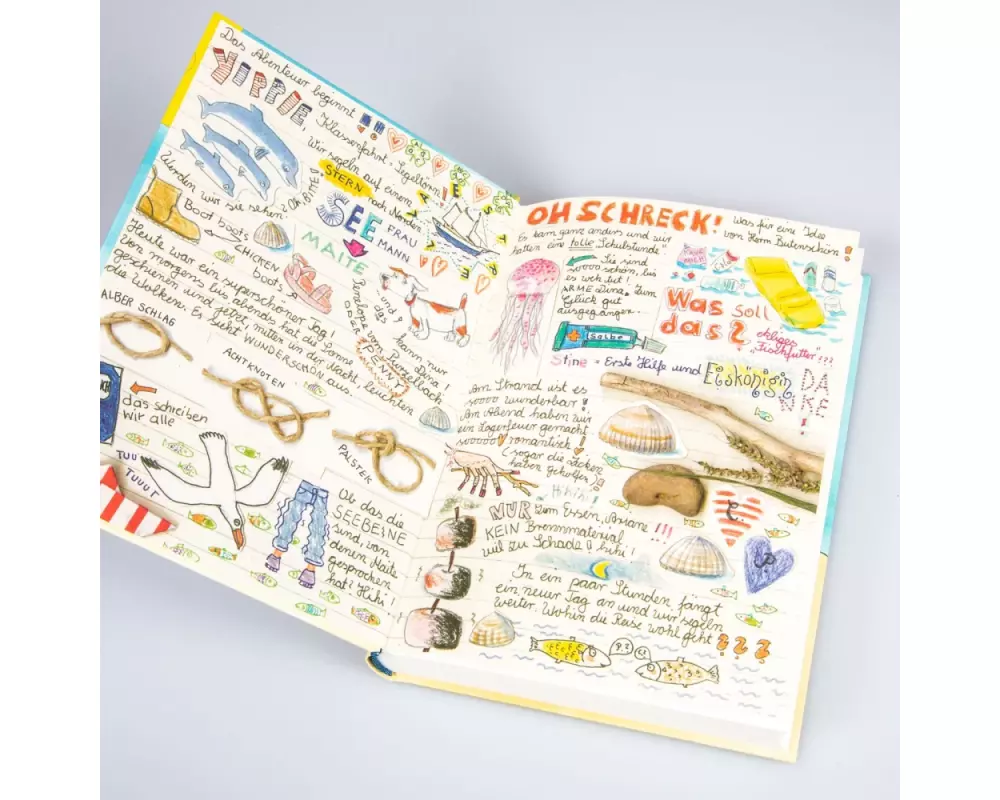 Das Abenteuer beginnt!!
YIPPIE,
Klassenfahrt = Segeltörn!
Wir segeln auf einem
STERN
nach Norden
Werden wir sie sehen? Oh, BITTE!
SEE FRAU
MANN
MAITE
Boot boots
CHICKEN
boots
Heute war ein superschöner Tag!
Von morgens bis abends hat die Sonne
geschienen und jetzt, mitten in der Nacht, leuchten
die Wolken. Es sieht WUNDERSCHÖN aus.
und das
kann nur
Penelope von Purzelbach
ODER PENNY
ALBER SCHLAG
ACHTKNOTEN
PALSTEK
das schreiben
wir alle
TUU
TUUUT
Ob das die
SEEBEINE
sind, von
denen Maite
gesprochen
hat? Hihi!
OH SCHRECK! Was für eine Idee
von Herrn Butenschön!
Es kam ganz anders und wir
hatten eine tolle "Schulstunde"
Sie sind
soooo schön, bis
es weh tut!
ARME Lina. Zum
Glück gut
ausgegangen.
Was soll
das?
ekliges
"Fischfutter"???
Salbe
Stine = Erste Hilfe und Eiskönigin
DANKE!
Am Strand ist es
sooo wunderbar!
Am Abend haben wir
ein Lagerfeuer gemacht
sooooo romantisch!
(sogar die Zicken
haben geholfen)
Hihihi!
NUR zum Essen, Ariane!!!
KEIN Brennmaterial
weil zu Schade! hihi!
In ein paar Stunden fängt
ein neuer Tag an und wir segeln
weiter. Wohin die Reise wohl geht???